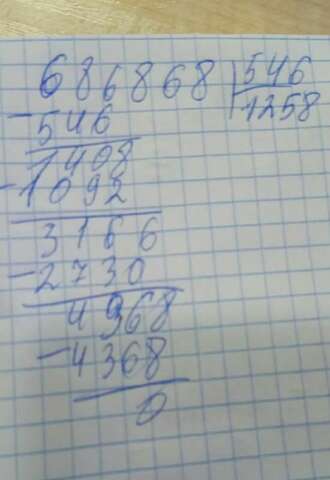 686868 546
- 546 1258
1408
- 1092
3166
- 2730
4368
- 4368
0